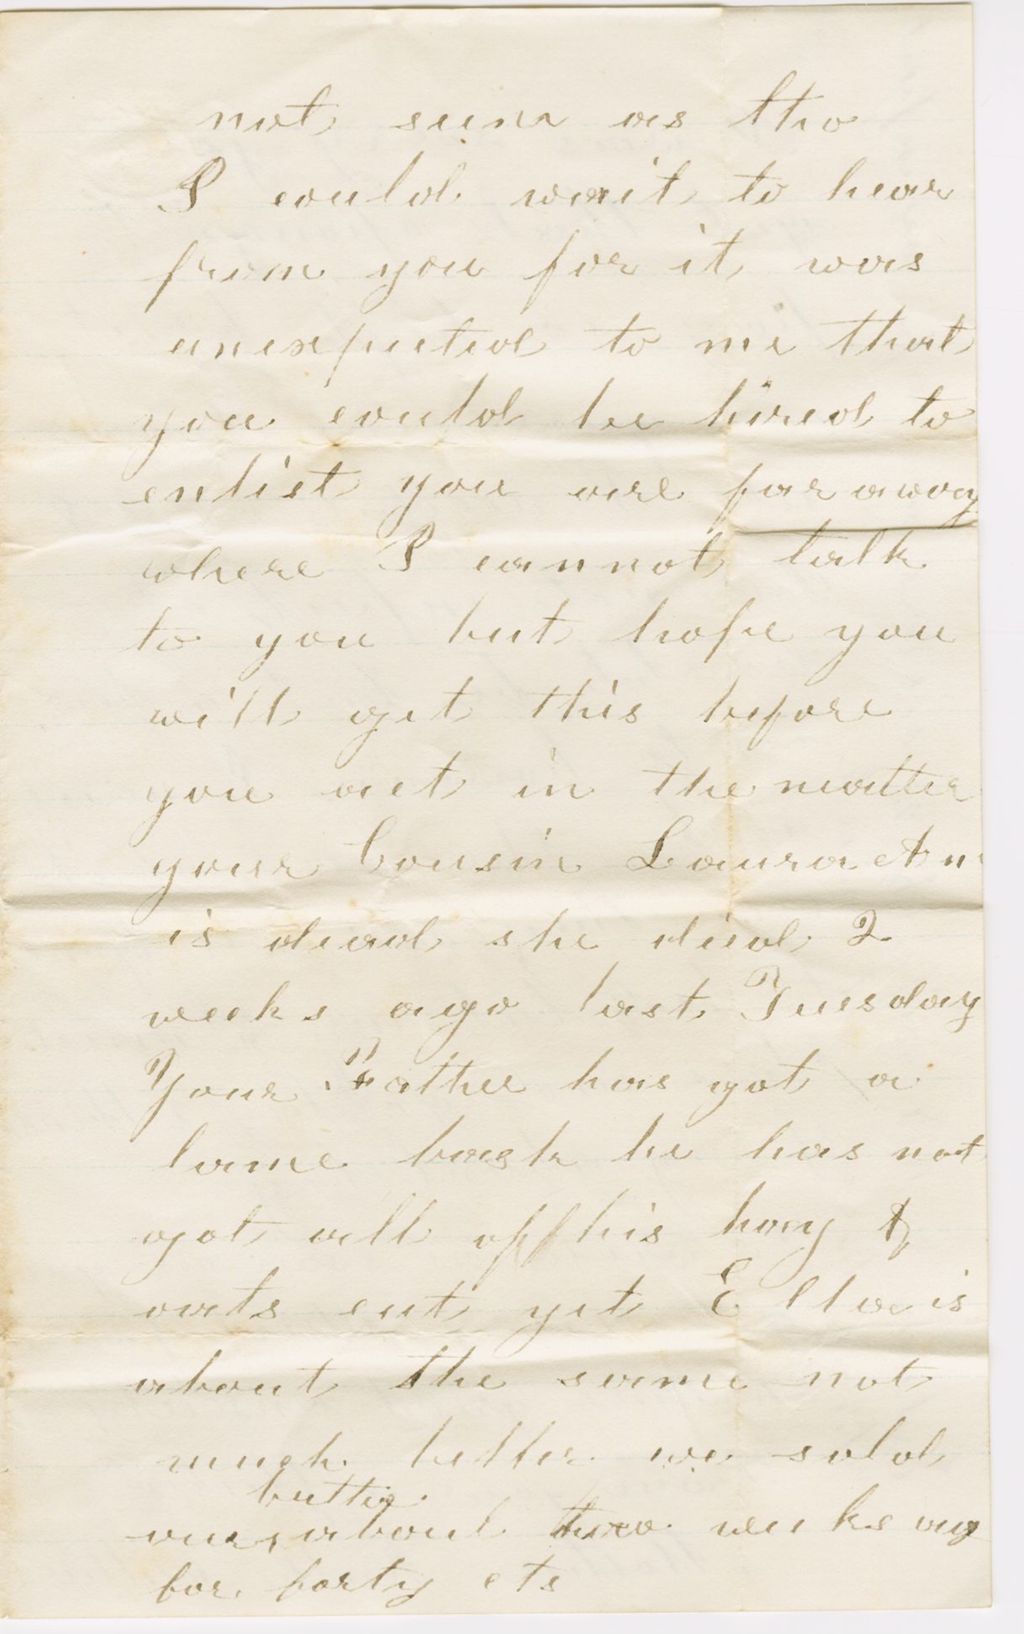 not seem as tho
I could wait to hear
from you for it was
unexpected to me that
you could be hired to
enlist you are far away
where I cannot talk
to you but hope you
will get this before
you act in the matter
your Cousin Laura An
is dead she died 2
weeks ago last Tuesday
Your Father has got a
lame back he has not
got all off his hay &
oats cut yet Ella is
about the same not
much better we sold
butter
our about two weeks ago
for forty cts